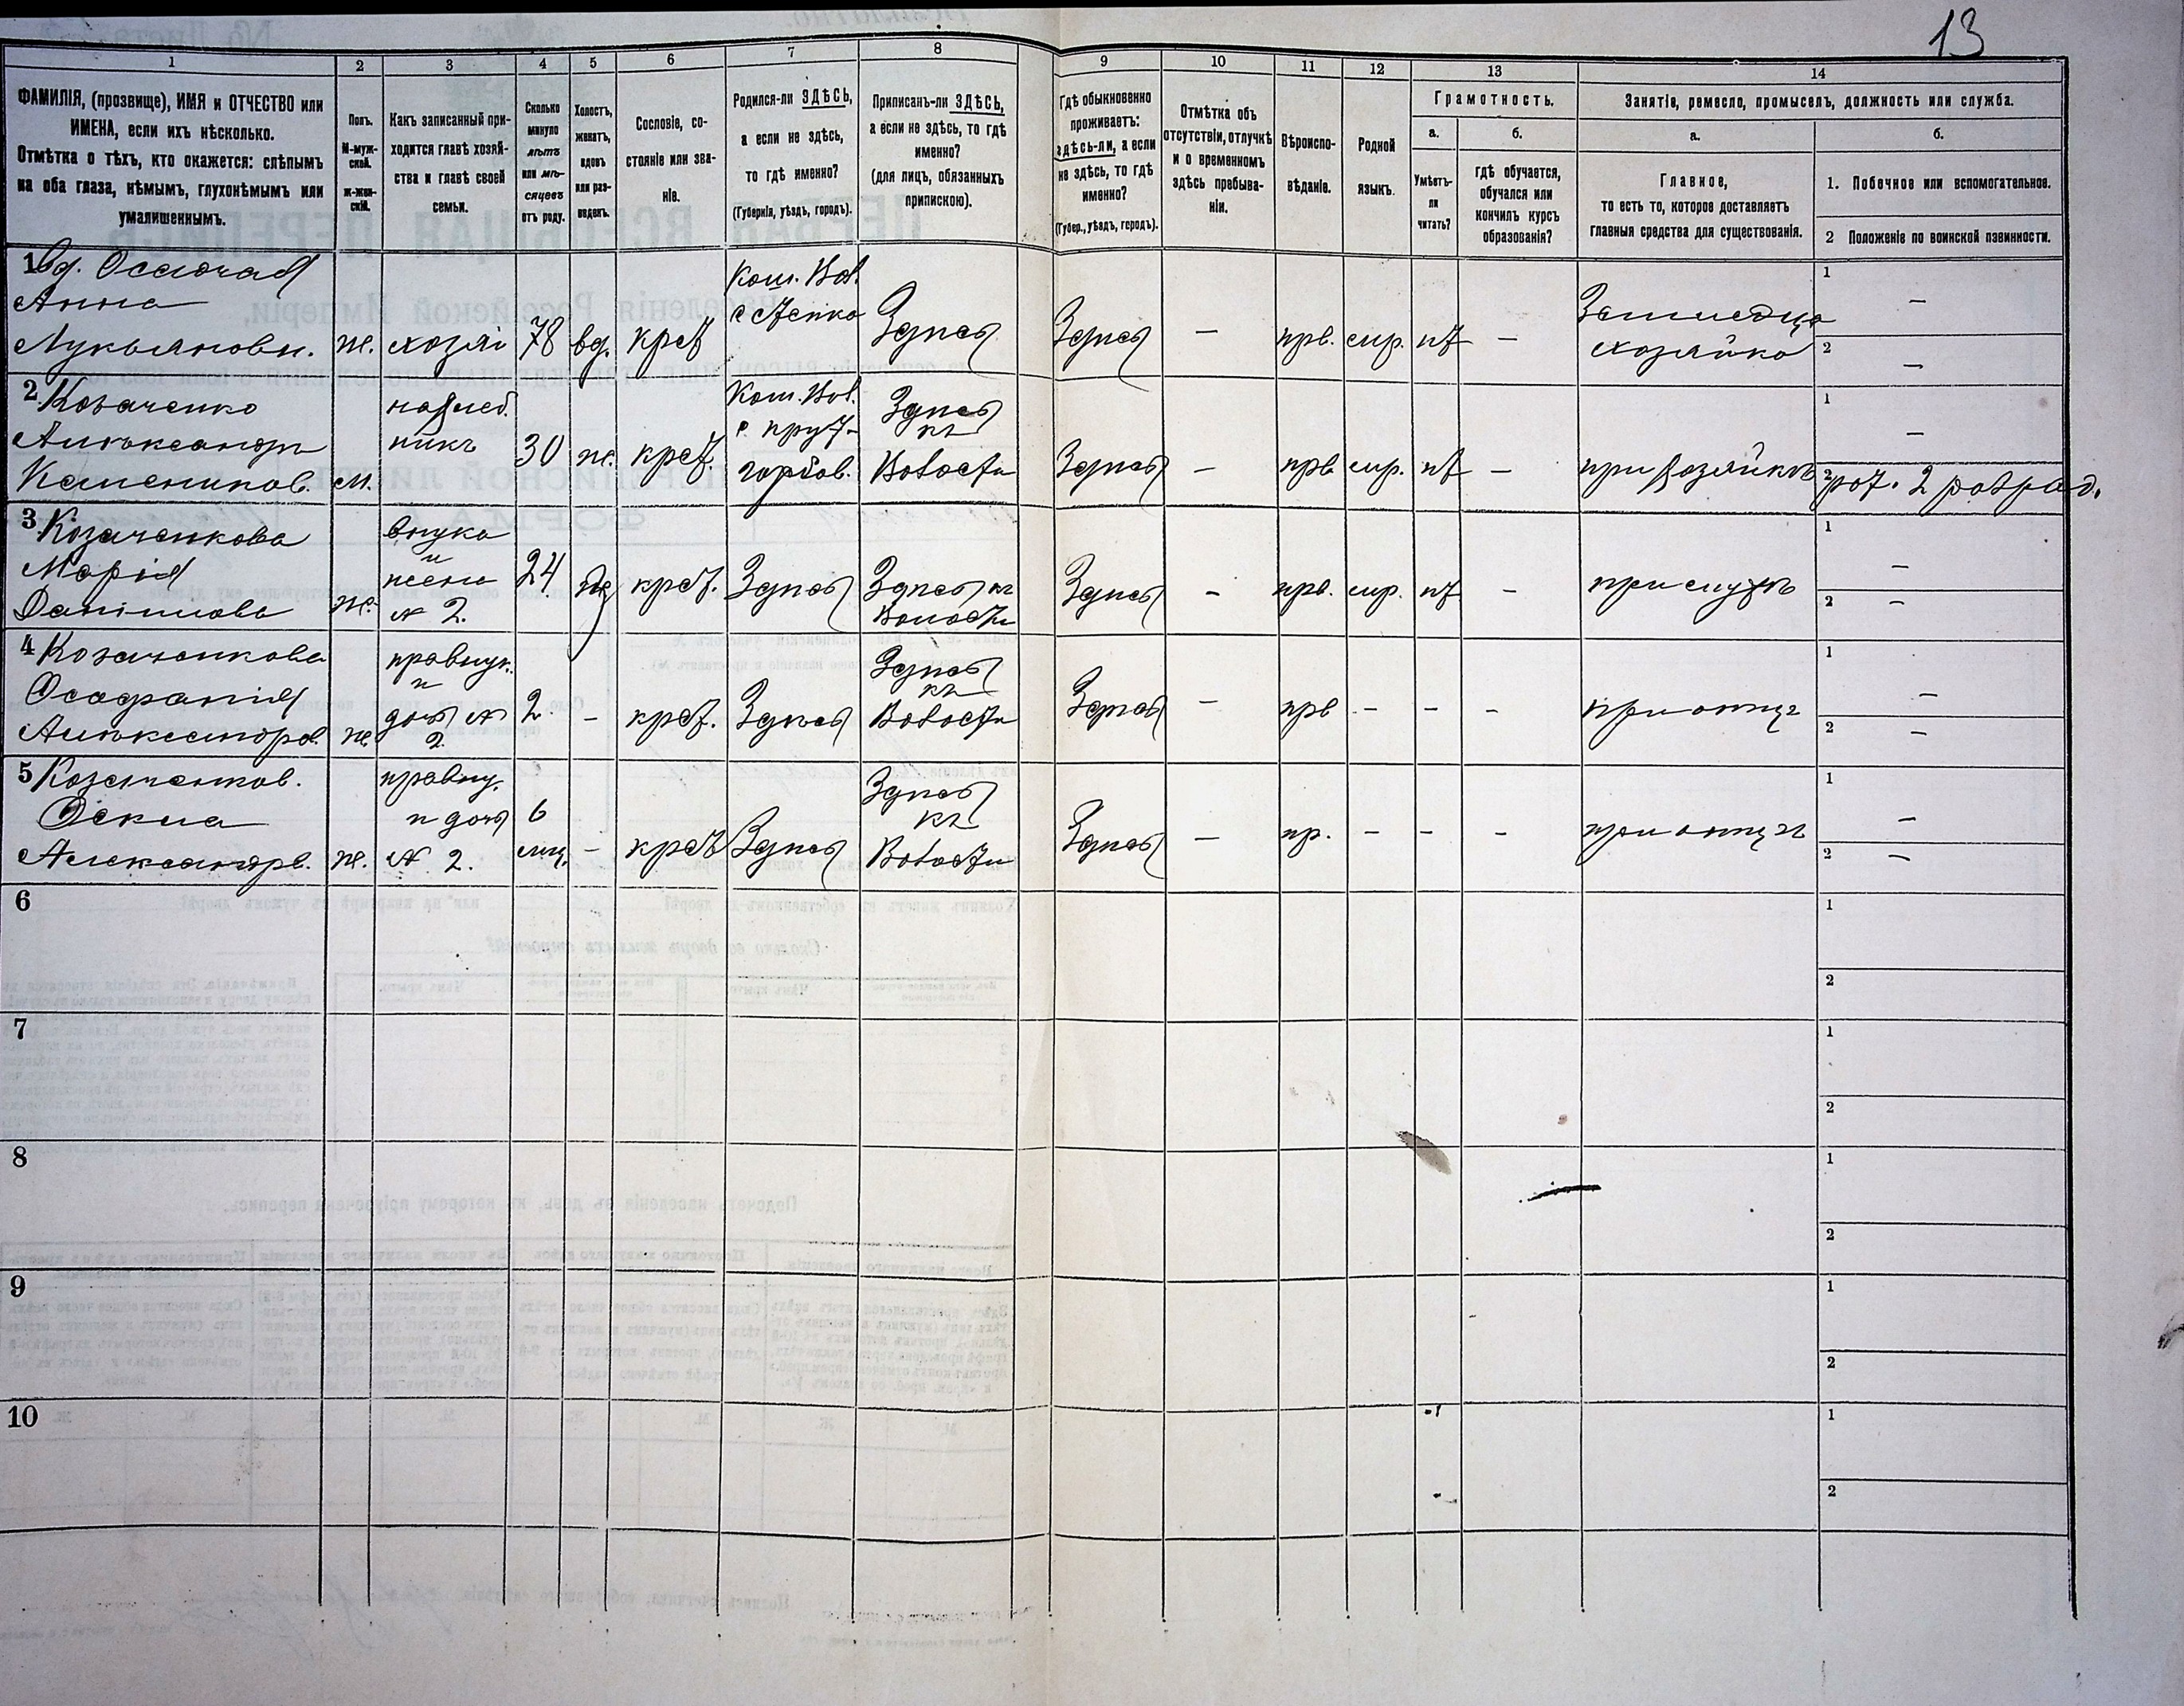 13
1 2 3 4 5 6 7 8 9 10 11 12 13 14
ФАМИЛІЯ, (прозвище), ИМЯ и ОТЧЕСТВО или
ИМЕНА, если ихъ нѣсколько.
Отмѣтка о тѣхъ, кто окажется: слѣпымъ
на оба глаза, нѣмымъ, глухонѣмымъ или
умалишеннымъ.
Полъ.
М-муж-
ской.
ж-жен-
скій.
Какъ записанный при-
ходится главѣ хозяй-
ства и главѣ своей
семьи.
Сколько
минуло
лѣтъ
или мѣ-
сяцевъ
отъ роду.
Холостъ,
женатъ,
вдовъ
или раз-
веденъ.
Сословіе, со-
стояніе или зва-
ніе.
Родился-ли ЗДѢСЬ,
а если не здѣсь,
то гдѣ именно?
(Губернія, уѣздъ, городъ).
Приписанъ-ли ЗДѢСЬ,
а если не здѣсь, то гдѣ
именно?
(для лицъ, обязанныхъ
припискою).
Гдѣ обыкновенно
проживаетъ:
здѣсь-ли, а если
не здѣсь, то гдѣ
именно?
(Губер., уѣздъ, городъ).
Отмѣтка объ
отсутствіи, отлучкѣ
и о временномъ
здѣсь пребыва-
ніи.
Вѣроиспо-
вѣданіе.
Родной
языкъ.
Грамотность.
а.
Умѣетъ-
ли
читать?
б.
гдѣ обучается,
обучался или
кончилъ курсъ
образованія?
Занятіе, ремесло, промыселъ, должность или служба.
а.
Главное,
то есть то, которое доставляетъ
главныя средства для существованія.
б.
1. Побочное или вспомогательное.
2 Положеніе по воинской повинности.
1 вд.
Анна
Лукьяновн.
ж.
хозяі
78
вд.
крст
Кош. Вол.
Здѣсь
Здѣсь
—
прв.
мр.
нт
—
хозяйка
1 —
2 —
2 Козаченко
Алѣксандръ
м.
30
ж.
крст.
Кош. Вол.
Здѣсь
къ
Волости
Здѣсь
—
прв
мр.
нт
—
при хозяйкѣ
1 —
2 рат. 2 разряд.
3 Козаченкова
Марія
Данилова
ж.
внука
и
жена
№ 2.
24
крст.
Здѣсь
Здѣсь къ
Волости
Здѣсь
-
прв.
мр.
нт
-
при мужѣ
1 —
2 —
4 Козаченкова
Алѣксандров.
ж.
правнук.
и
дочь №
2.
2
-
крст.
Здѣсь
Здѣсь
къ
Волости
Здѣсь
—
прв
-
-
-
при отцѣ
1 —
2 —
5 Козаченков.
Александрв.
ж.
правну.
и дочь
№ 2.
6
мц.
-
крст
Здѣсь
Здѣсь
къ
Волости
Здѣсь
—
пр.
-
-
-
при отцѣ
1 —
2 —
6
1
2
7
1
2
8
1
2
9
1
2
10
1
2